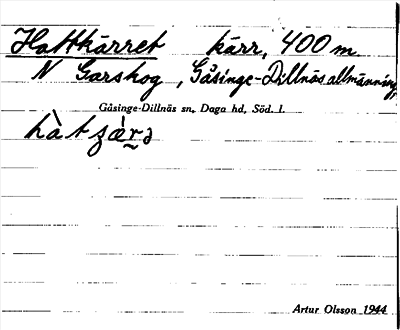 Hattkärret kärr, 400 m
N Garshog, Gåsinge-Dillnäs allmänning,
Gåsinge-Dillnäs sn, Daga hd, Söd. l.
hàtʒä́r̯ə
Artur Olsson 1944